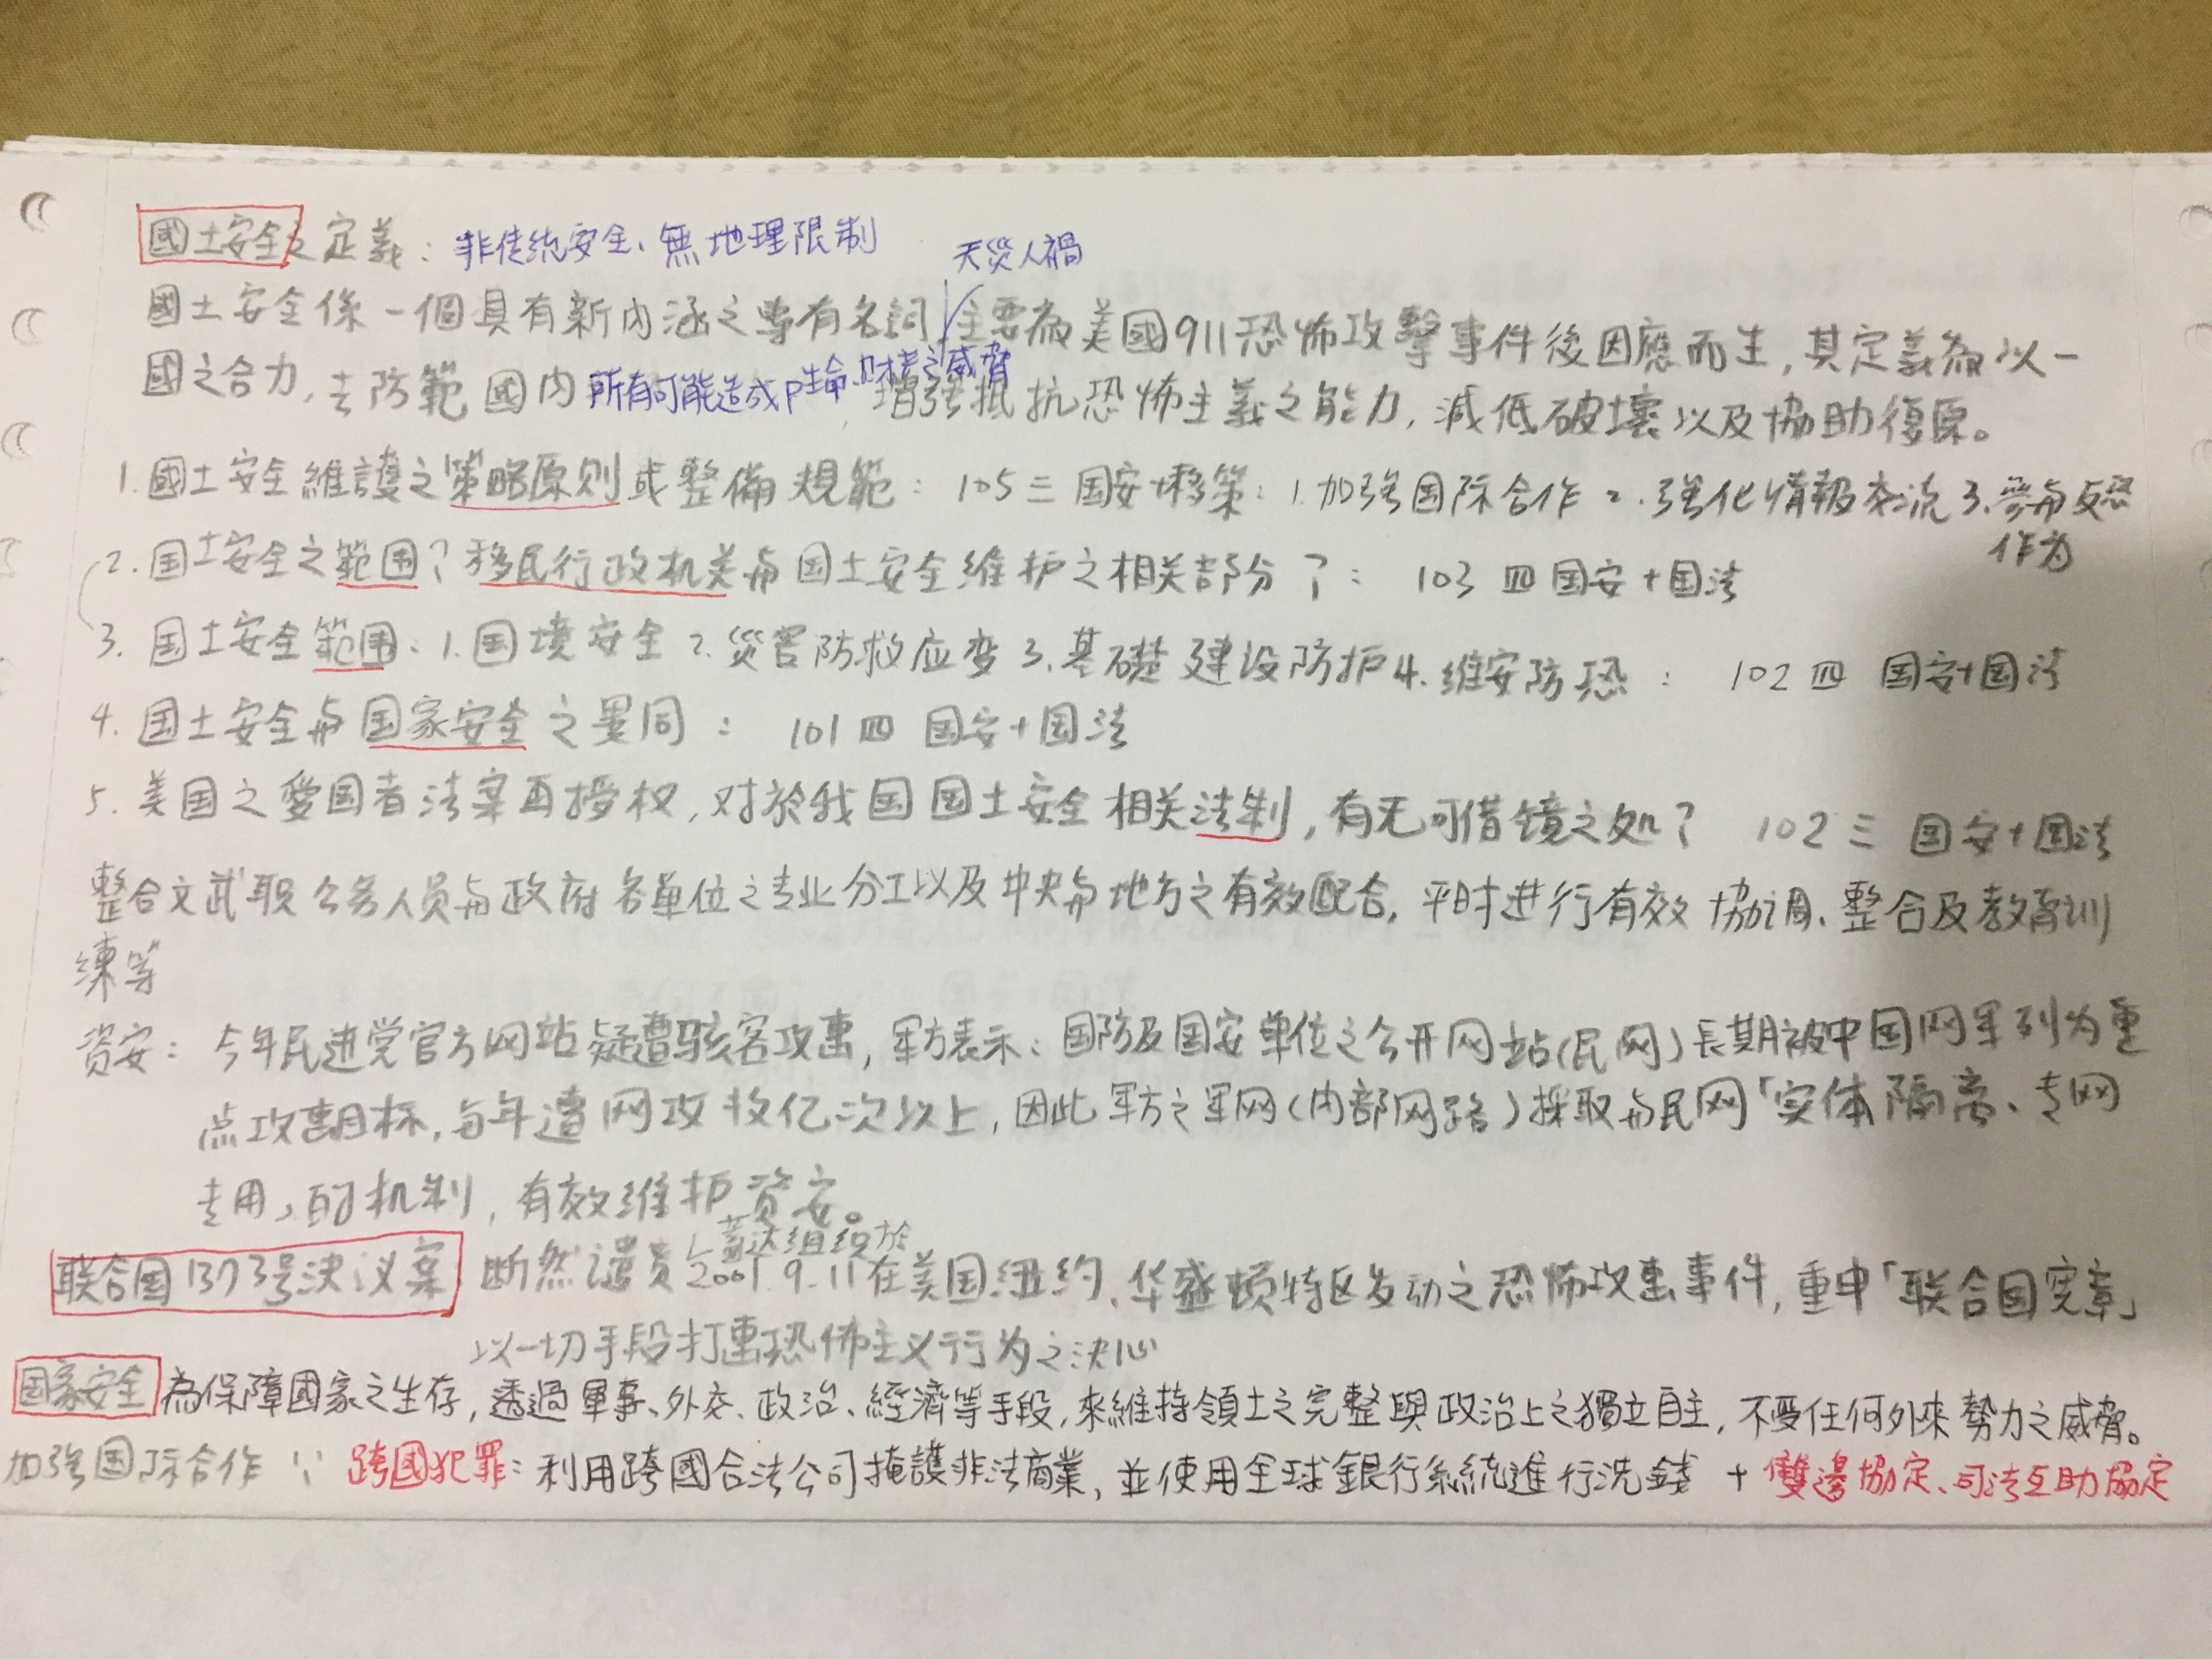 國土安全之定義：非传统安全、無地理限制
天災人禍
國土安全係一個具有新內涵之專有名詞，主要為美國911恐怖攻擊事件後因應而生，其定義為以一
國之合力，去防範國內所有可能造成 生命、財產之威脅，增強抵抗恐怖主義之能力，減低破壞以及協助復原。
1. 國土安全維護之策略原則或整備規範：105三国安+移策：1.加強国际合作 2.強化情報交流 3.參与反恐
作为
2. 国土安全之範围？移民行政机关与国土安全維护之相关部分？： 103四国安+国法
3. 国土安全範围：1.国境安全 2.災害防救应变 3.基礎建设防护 4.維安防恐： 102四 国安+国法
4. 国土安全与国家安全之異同： 101四 国安+国法
5. 美国之愛国者法案再授权，对於我国国土安全相关法制，有无可借镜之处？ 102三 国安+国法
整合文武職公务人员与政府各單位之专业分工以及中央与地方之有效配合，平时进行有效協调、整合及教育訓
練等
資安：今年民进党官方网站疑遭駭客攻击，軍方表示：国防及国安單位之公开网站(民网)長期被中国网軍列为重
点攻击目标，每年遭网攻数亿次以上，因此軍方之軍网(内部网路)採取与民网「实体隔离、专网
专用」的机制，有效維护資安。
蓋达组织於
联合国1373号決议案 断然谴责2001.9.11在美国纽约、华盛頓特区发动之恐怖攻击事件，重申「联合国宪章」
以一切手段打击恐怖主义行为之決心
国家安全 為保障國家之生存，透過軍事、外交、政治、經濟等手段，來維持領土之完整與政治上之獨立自主，不受任何外來勢力之威脅。
加強国际合作 ∵ 跨國犯罪：利用跨國合法公司掩護非法商業，並使用全球銀行系統進行洗錢 + 雙邊協定、司法互助協定